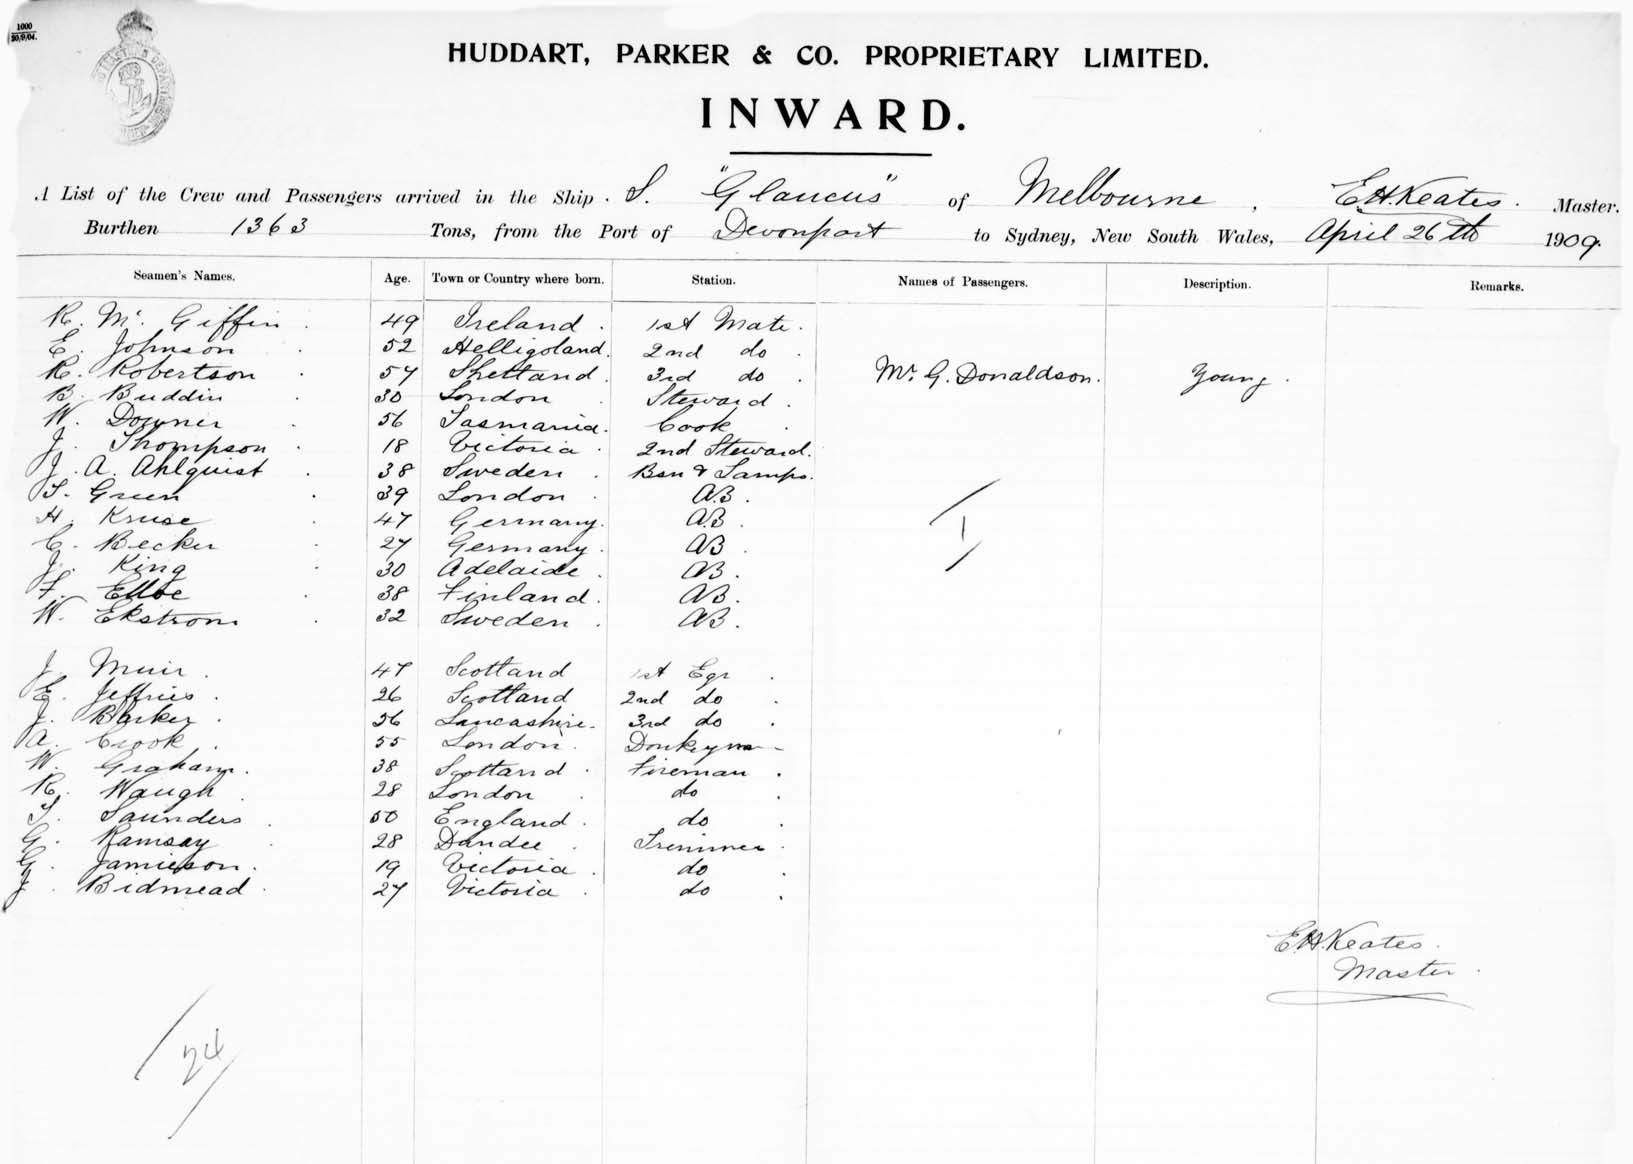 1000
20/9/04.
HUDDART, PARKER & CO. PROPRIETARY LIMITED.
INWARD.
A List of the Crew and Passengers arrived in the Ship. S. "Glaucus" of Melbourne, E.H. Keates. Master.
Burthen 1363 Tons, from the Port of Devonport to Sydney, New South Wales, April 26th 1909.
Seamen's Names. Age. Town or Country where born. Station. Names of Passengers. Description. Remarks.
R. Mc. Giffin 49 Ireland 1st Mate.
E. Johnson 52 Helligoland. 2nd do
R. Robertson 57 Shetland 3rd do Mr. G. Donaldson. Young
B. Buddin 30 London Steward
W. Downer 56 Tasmania. Cook
J. Thompson 18 Victoria 2nd Steward.
J. A. Ahlquist 38 Sweden Bsn & Lamps.
T. Green 39 London A.B.
H. Kruse 47 Germany. A.B.
C. Becker 27 Germany AB
J. King 30 Adelaide AB.
F. 38 Finland AB.
W. Ekstrom 32 Sweden AB.
1
J. Muir 47 Scotland 1st Egr
E. Jeffries 26 Scotland 2nd do
J. Barker 56 Lancashire 3rd do
A. Crook 55 London Donkeyman
W. Graham. 38 Scotland Fireman
R. Waugh 28 London do
T. Saunders 50 England do
G. Ramsay 28 Dundee Trimmer
G. Jamieson. 19 Victoria do
J. Bidmead 27 Victoria do
E.H. Keates.
Master
24